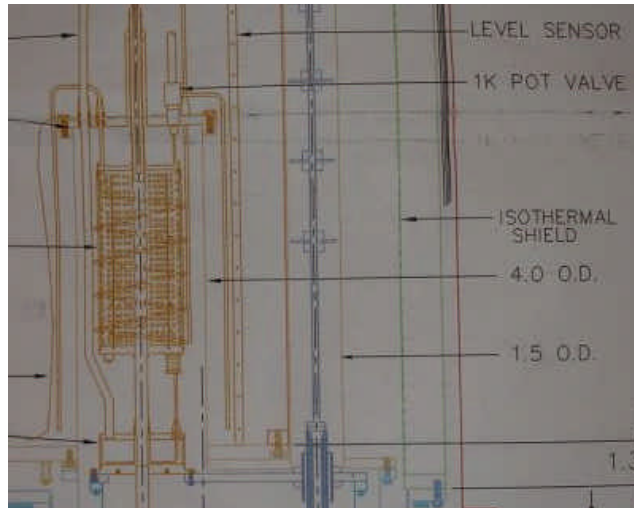 LEVEL SENSOR
1K POT VALVE
ISOTHERMAL
SHIELD
4.0 O.D.
1.5 O.D.